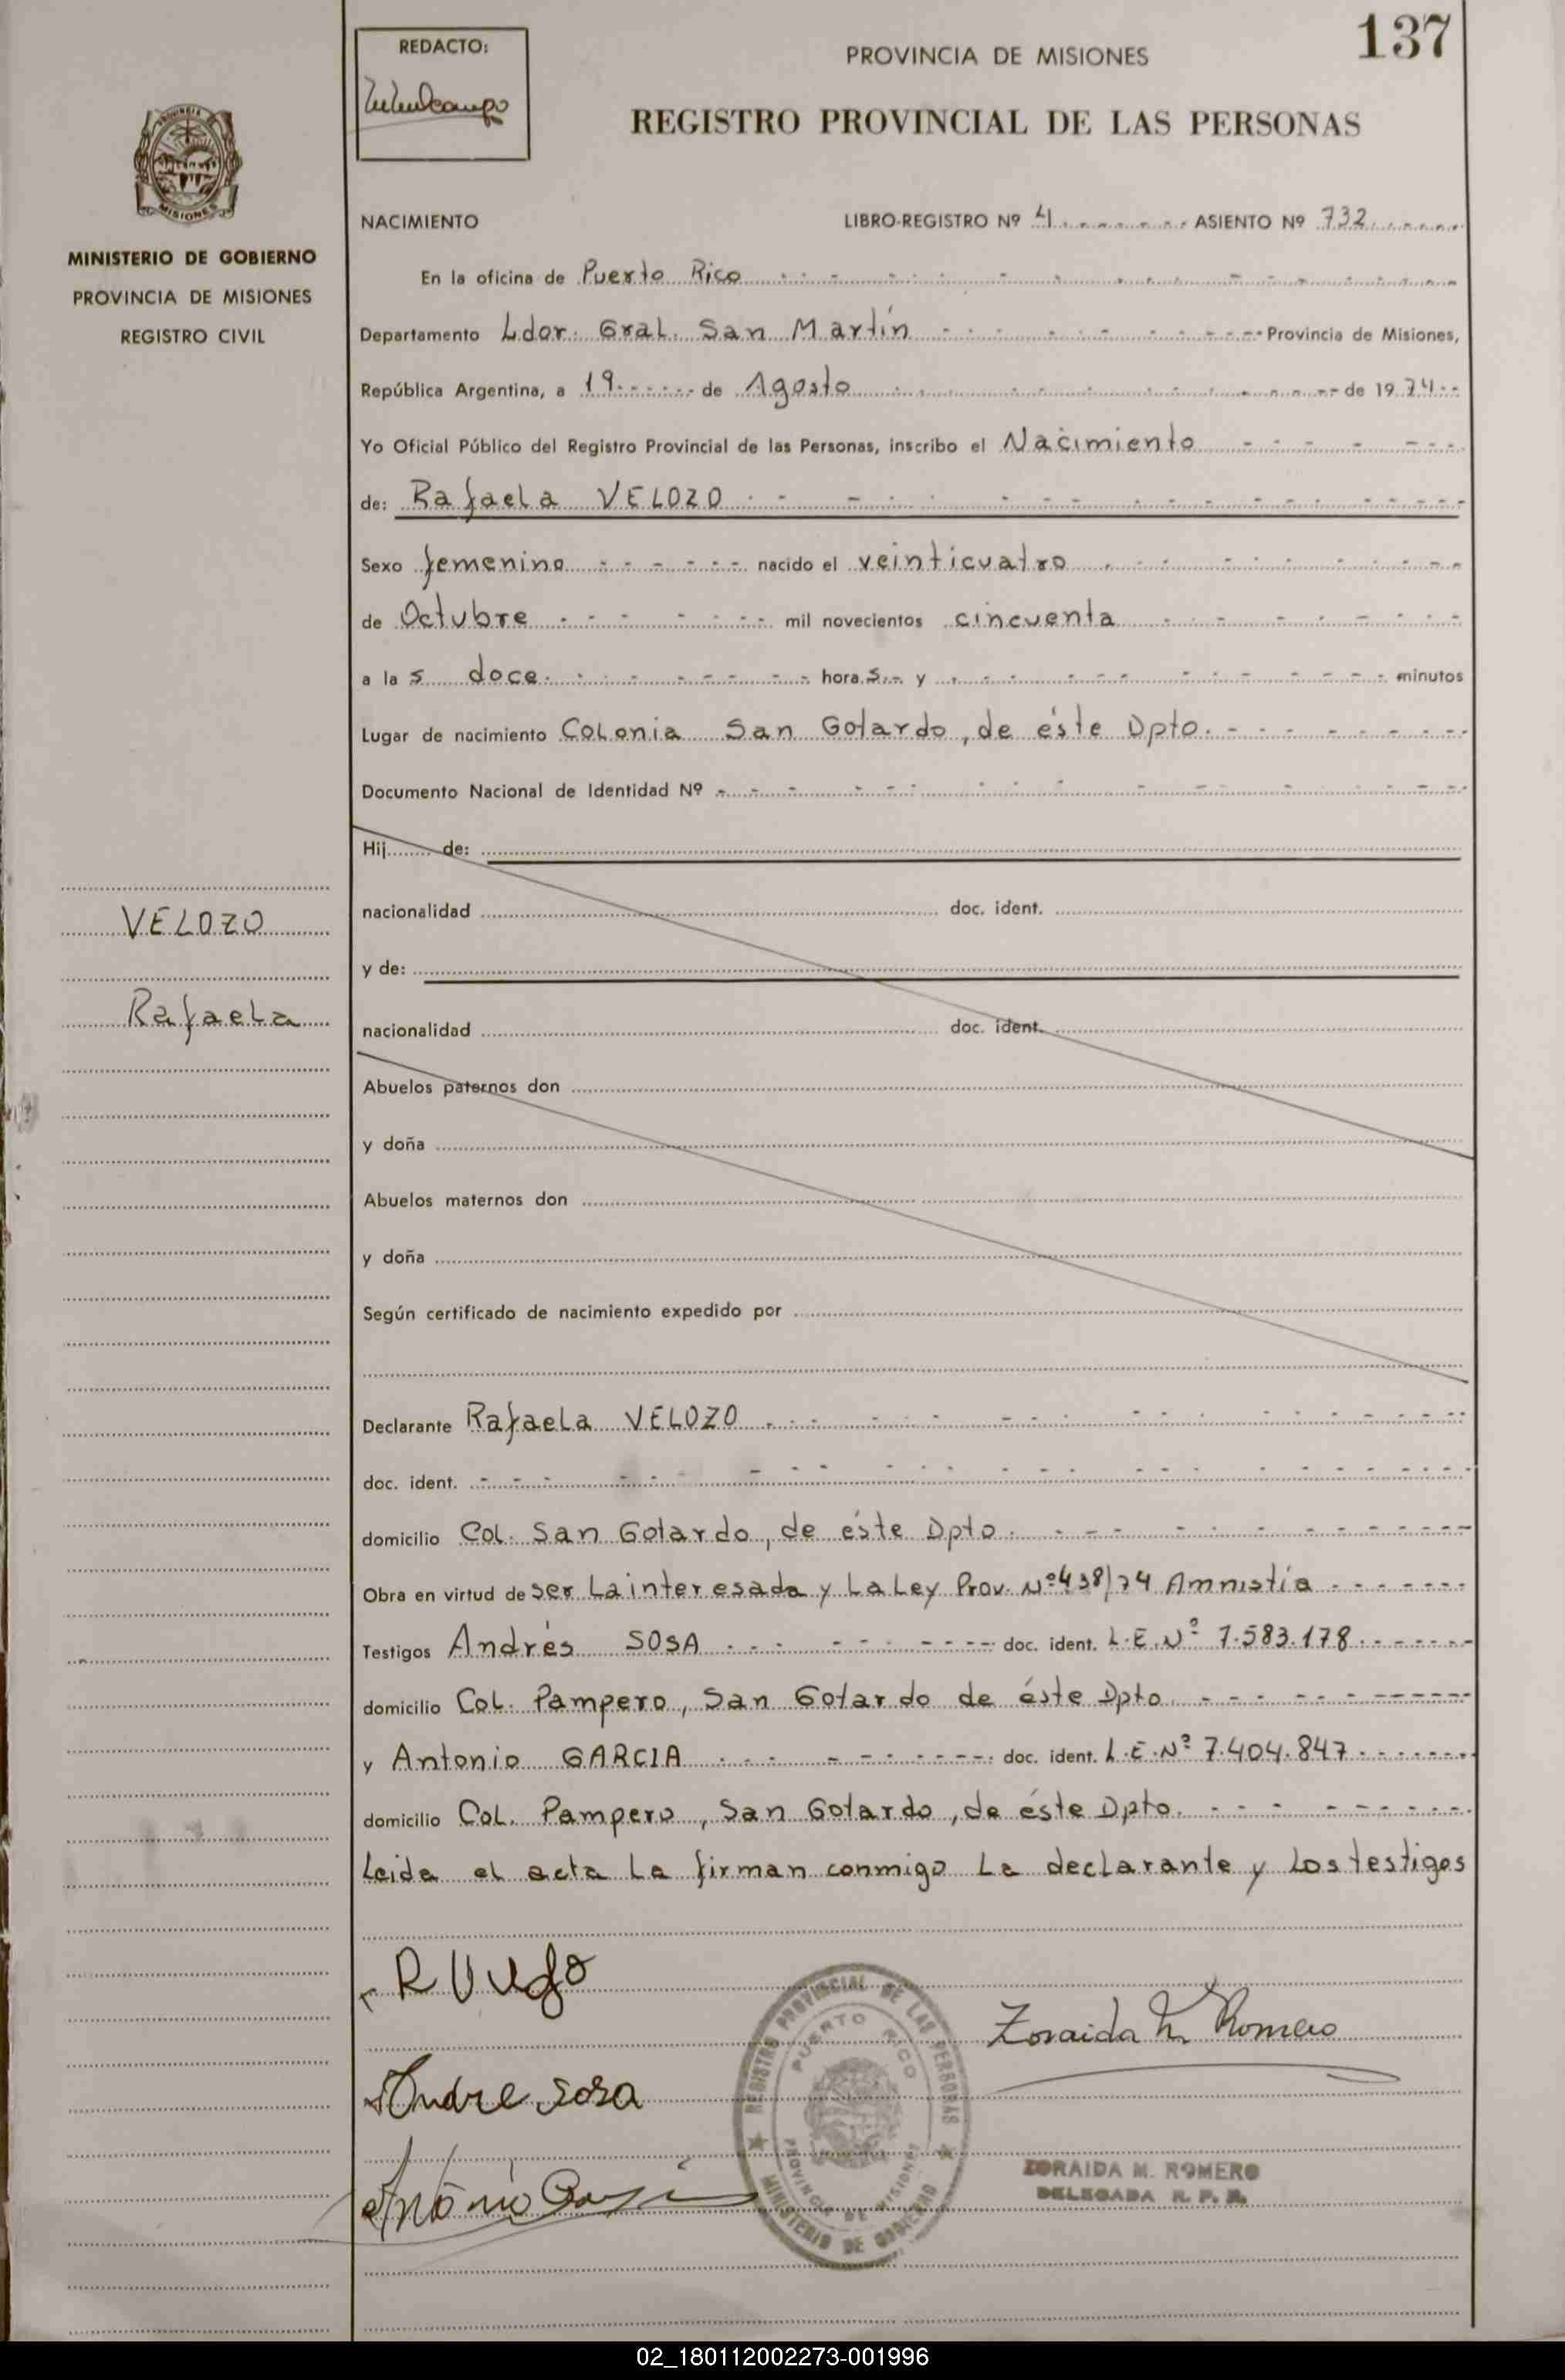 137
REDACTO:
PROVINCIA DE MISIONES
REGISTRO PROVINCIAL DE LAS PERSONAS
MISIONES
MINISTERIO DE GOBIERNO
PROVINCIA DE MISIONES
REGISTRO CIVIL
NACIMIENTO LIBRO-REGISTRO Nº 4 ASIENTO Nº 732
En la oficina de Puerto Rico
Departamento Ldor. Gral. San Martín Provincia de Misiones,
República Argentina, a 19 de Agosto de 1974
Yo Oficial Público del Registro Provincial de las Personas, inscribo el Nacimiento
de: Rafaela VELOZO
Sexo femenino nacido el veinticuatro
de Octubre mil novecientos cincuenta
a las doce horas y minutos
Lugar de nacimiento Colonia San Gotardo, de éste Dpto.
Documento Nacional de Identidad Nº
Hij de:
nacionalidad doc. ident.
y de:
nacionalidad doc. ident.
Abuelos paternos don
y doña
Abuelos maternos don
y doña
Según certificado de nacimiento expedido por
VELOZO
Rafaela
Declarante Rafaela VELOZO
doc. ident.
domicilio Col. San Gotardo, de éste Dpto.
Obra en virtud de ser La interesada y La Ley Prov. Nº 438/74 Amnistía
Testigos Andrés SOSA doc. ident. L.E. Nº 7.583.178
domicilio Col. Pampero, San Gotardo de éste Dpto.
y Antonio GARCIA doc. ident. L.E. Nº 7.404.847
domicilio Col. Pampero, San Gotardo, de éste Dpto.
Leida el acta La firman conmigo La declarante y Los testigos
Zoraida M Romero
Andre Sosa
Antonio
REGISTRO PROVINCIAL DE LAS PERSONAS
PUERTO RICO
PROVINCIA DE MISIONES
MINISTERIO DE GOBIERNO
ZORAIDA M. ROMERO
DELEGADA R. P. P.
02_180112002273-001996